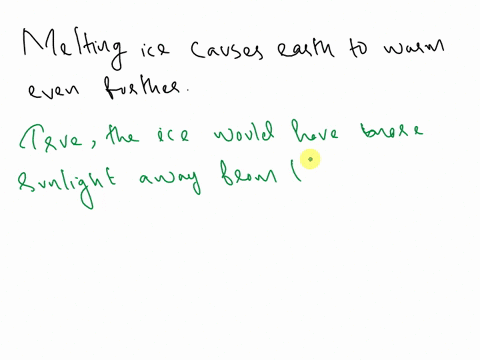 Melting ice causes earth to warm
even further.
True, the ice would have more
sunlight away from (